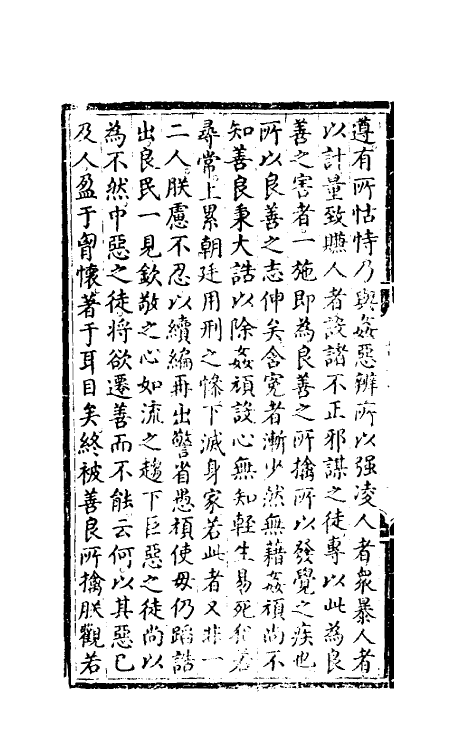 遵有所怙恃乃與姦惡辨所以强凌人者衆暴人者
以計量致賺人者設諸不正邪謀之徒專以此為良
善之害者一施即為良善之所擒所以發覺之疾也
所以良善之志伸矣含冤者漸少然無藉姦頑尚不
知善良秉大誥以除姦頑設心無知輕生易死若
尋常上累朝廷用刑之慘下滅身家若此者又非一
二人朕慮不忍以續編再出警省愚頑使毋仍蹈誥
出良民一見欽敬之心如流之趨下巨惡之徒尚以
為不然中惡之徒將欲遷善而不能云何以其惡已
及人盈于胷懷著于耳目矣終被善良所擒朕觀若